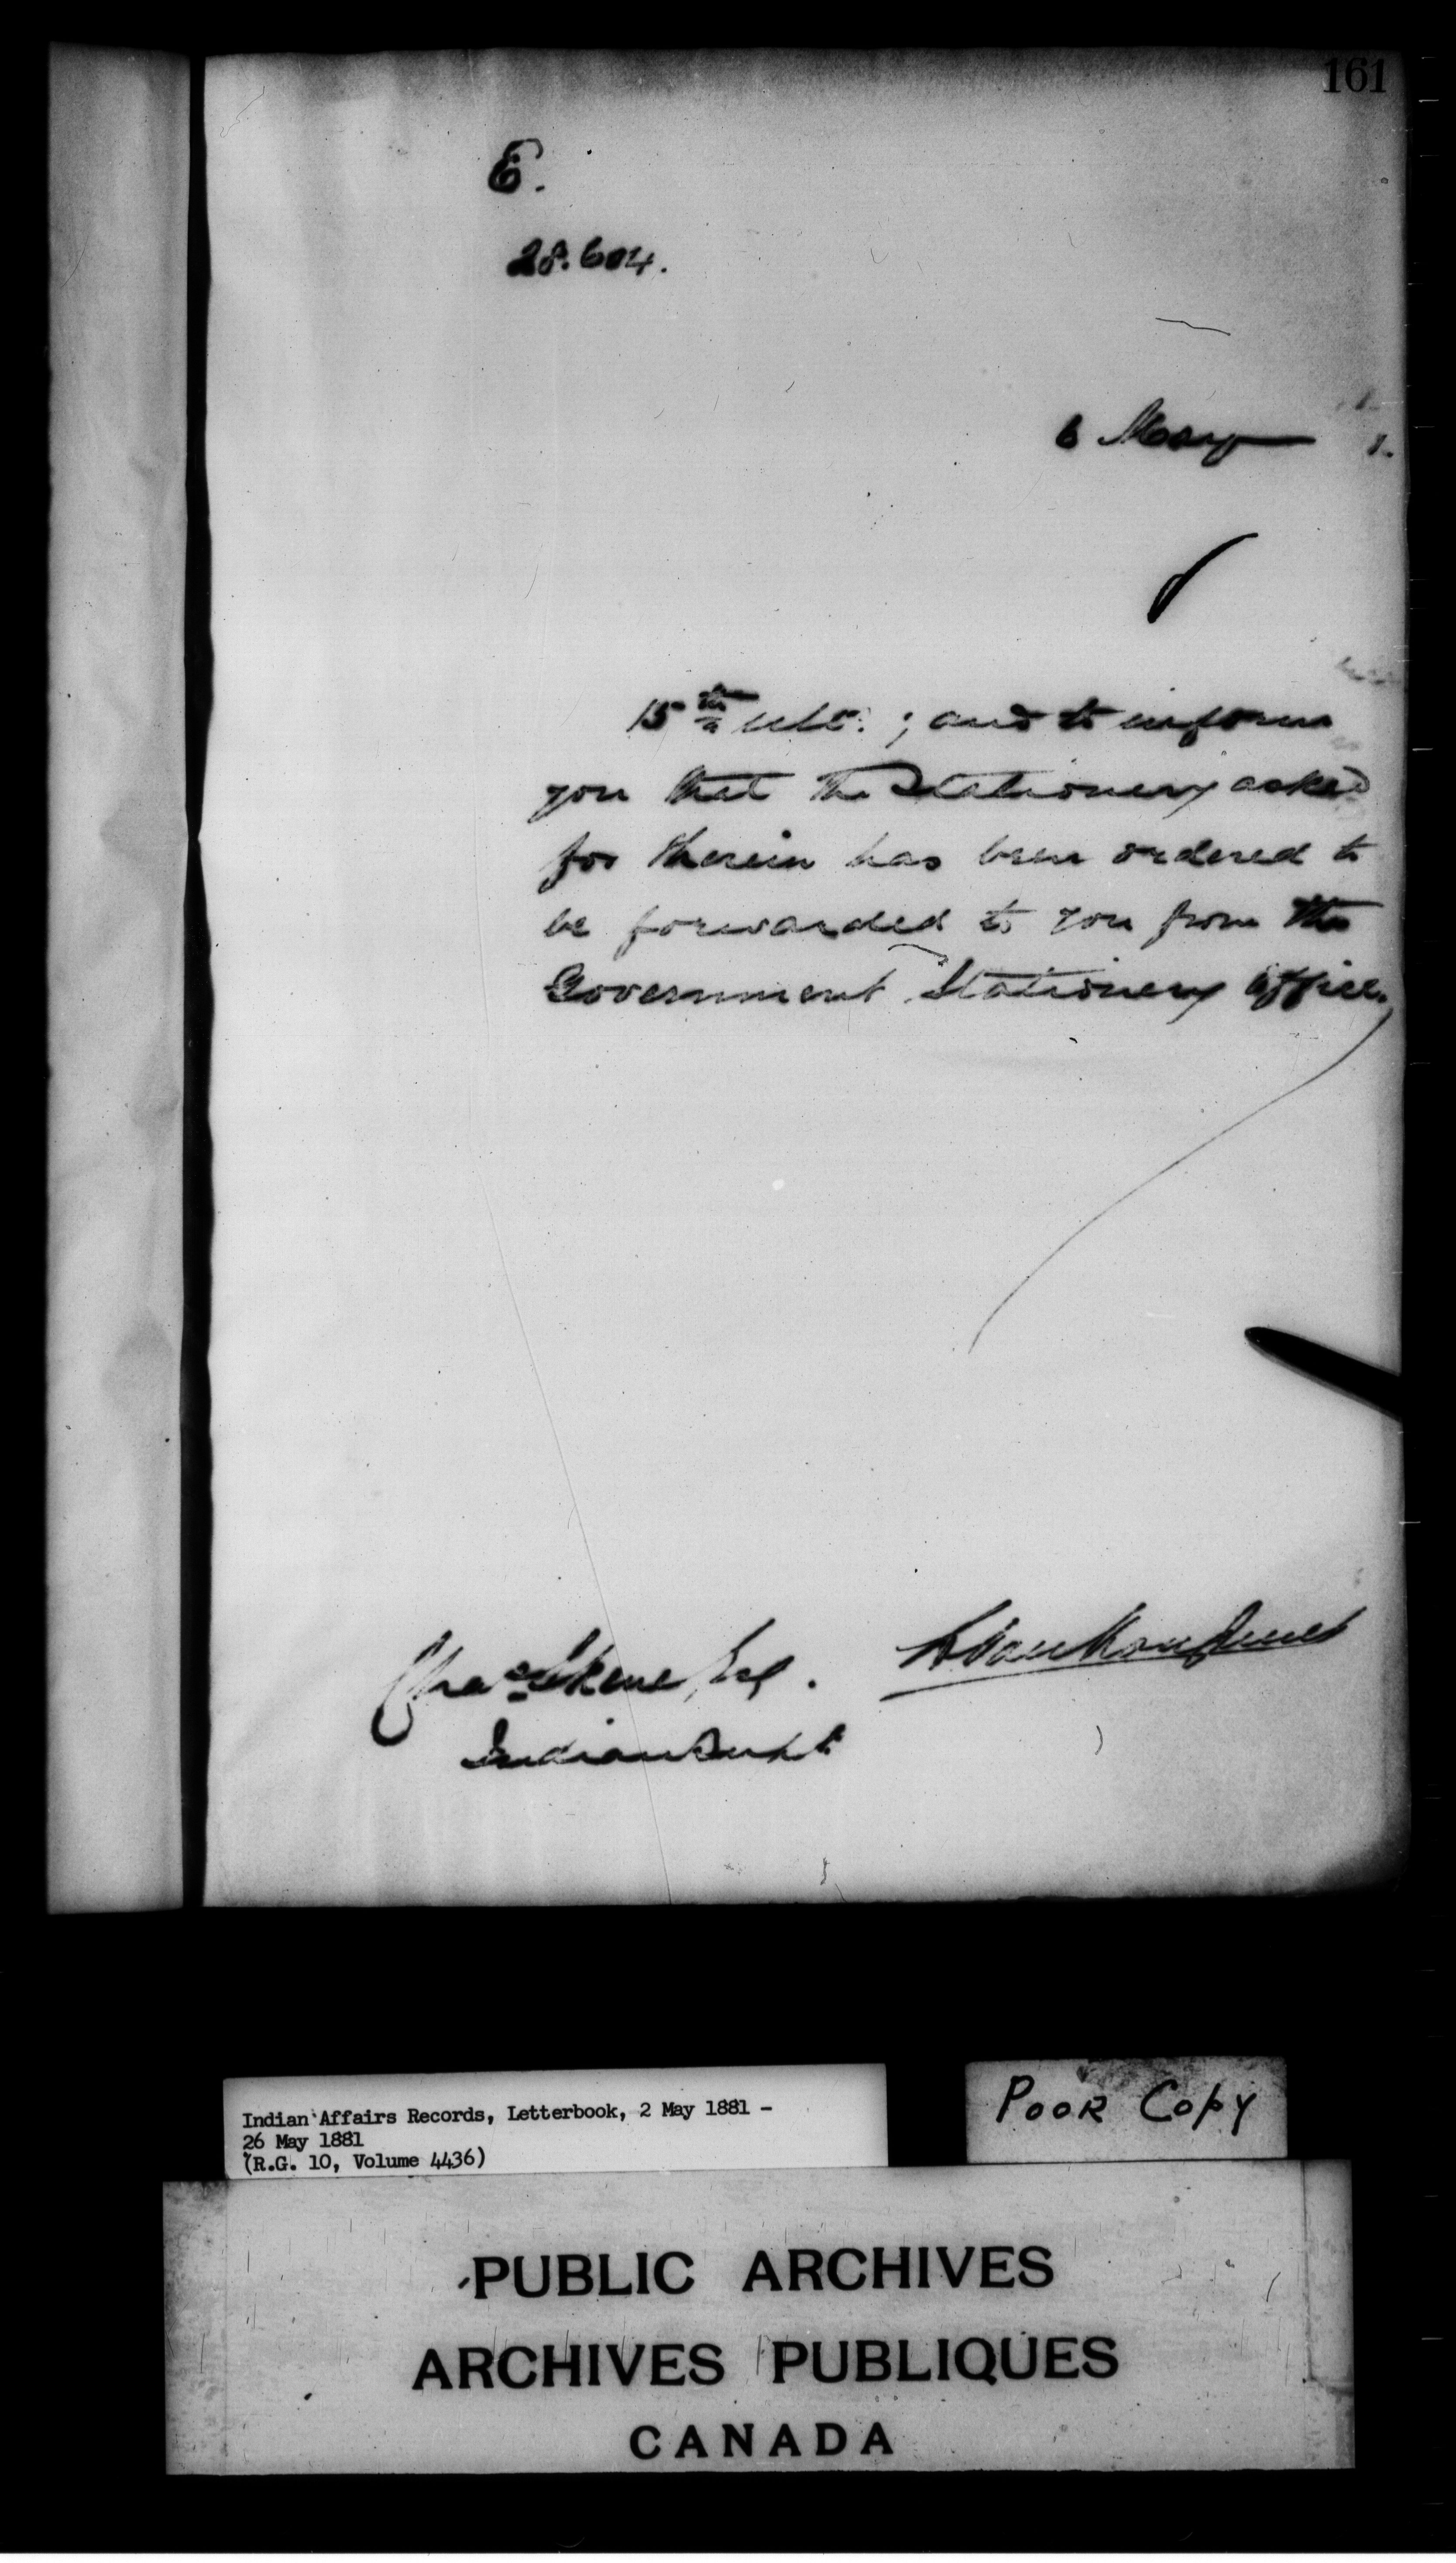 161
E.
28.604.
6 May 1.
15th ult.; and to inform
you that the Stationery asked
for therein has been ordered to
be forwarded to you from the
Government Stationery Office.
Chas Skene, Esq.
L. VanKoughnet
Indian Supt.
Indian Affairs Records, Letterbook, 2 May 1881 -
26 May 1881
(R.G. 10, Volume 4436)
POOR COPY
PUBLIC ARCHIVES
ARCHIVES PUBLIQUES
CANADA